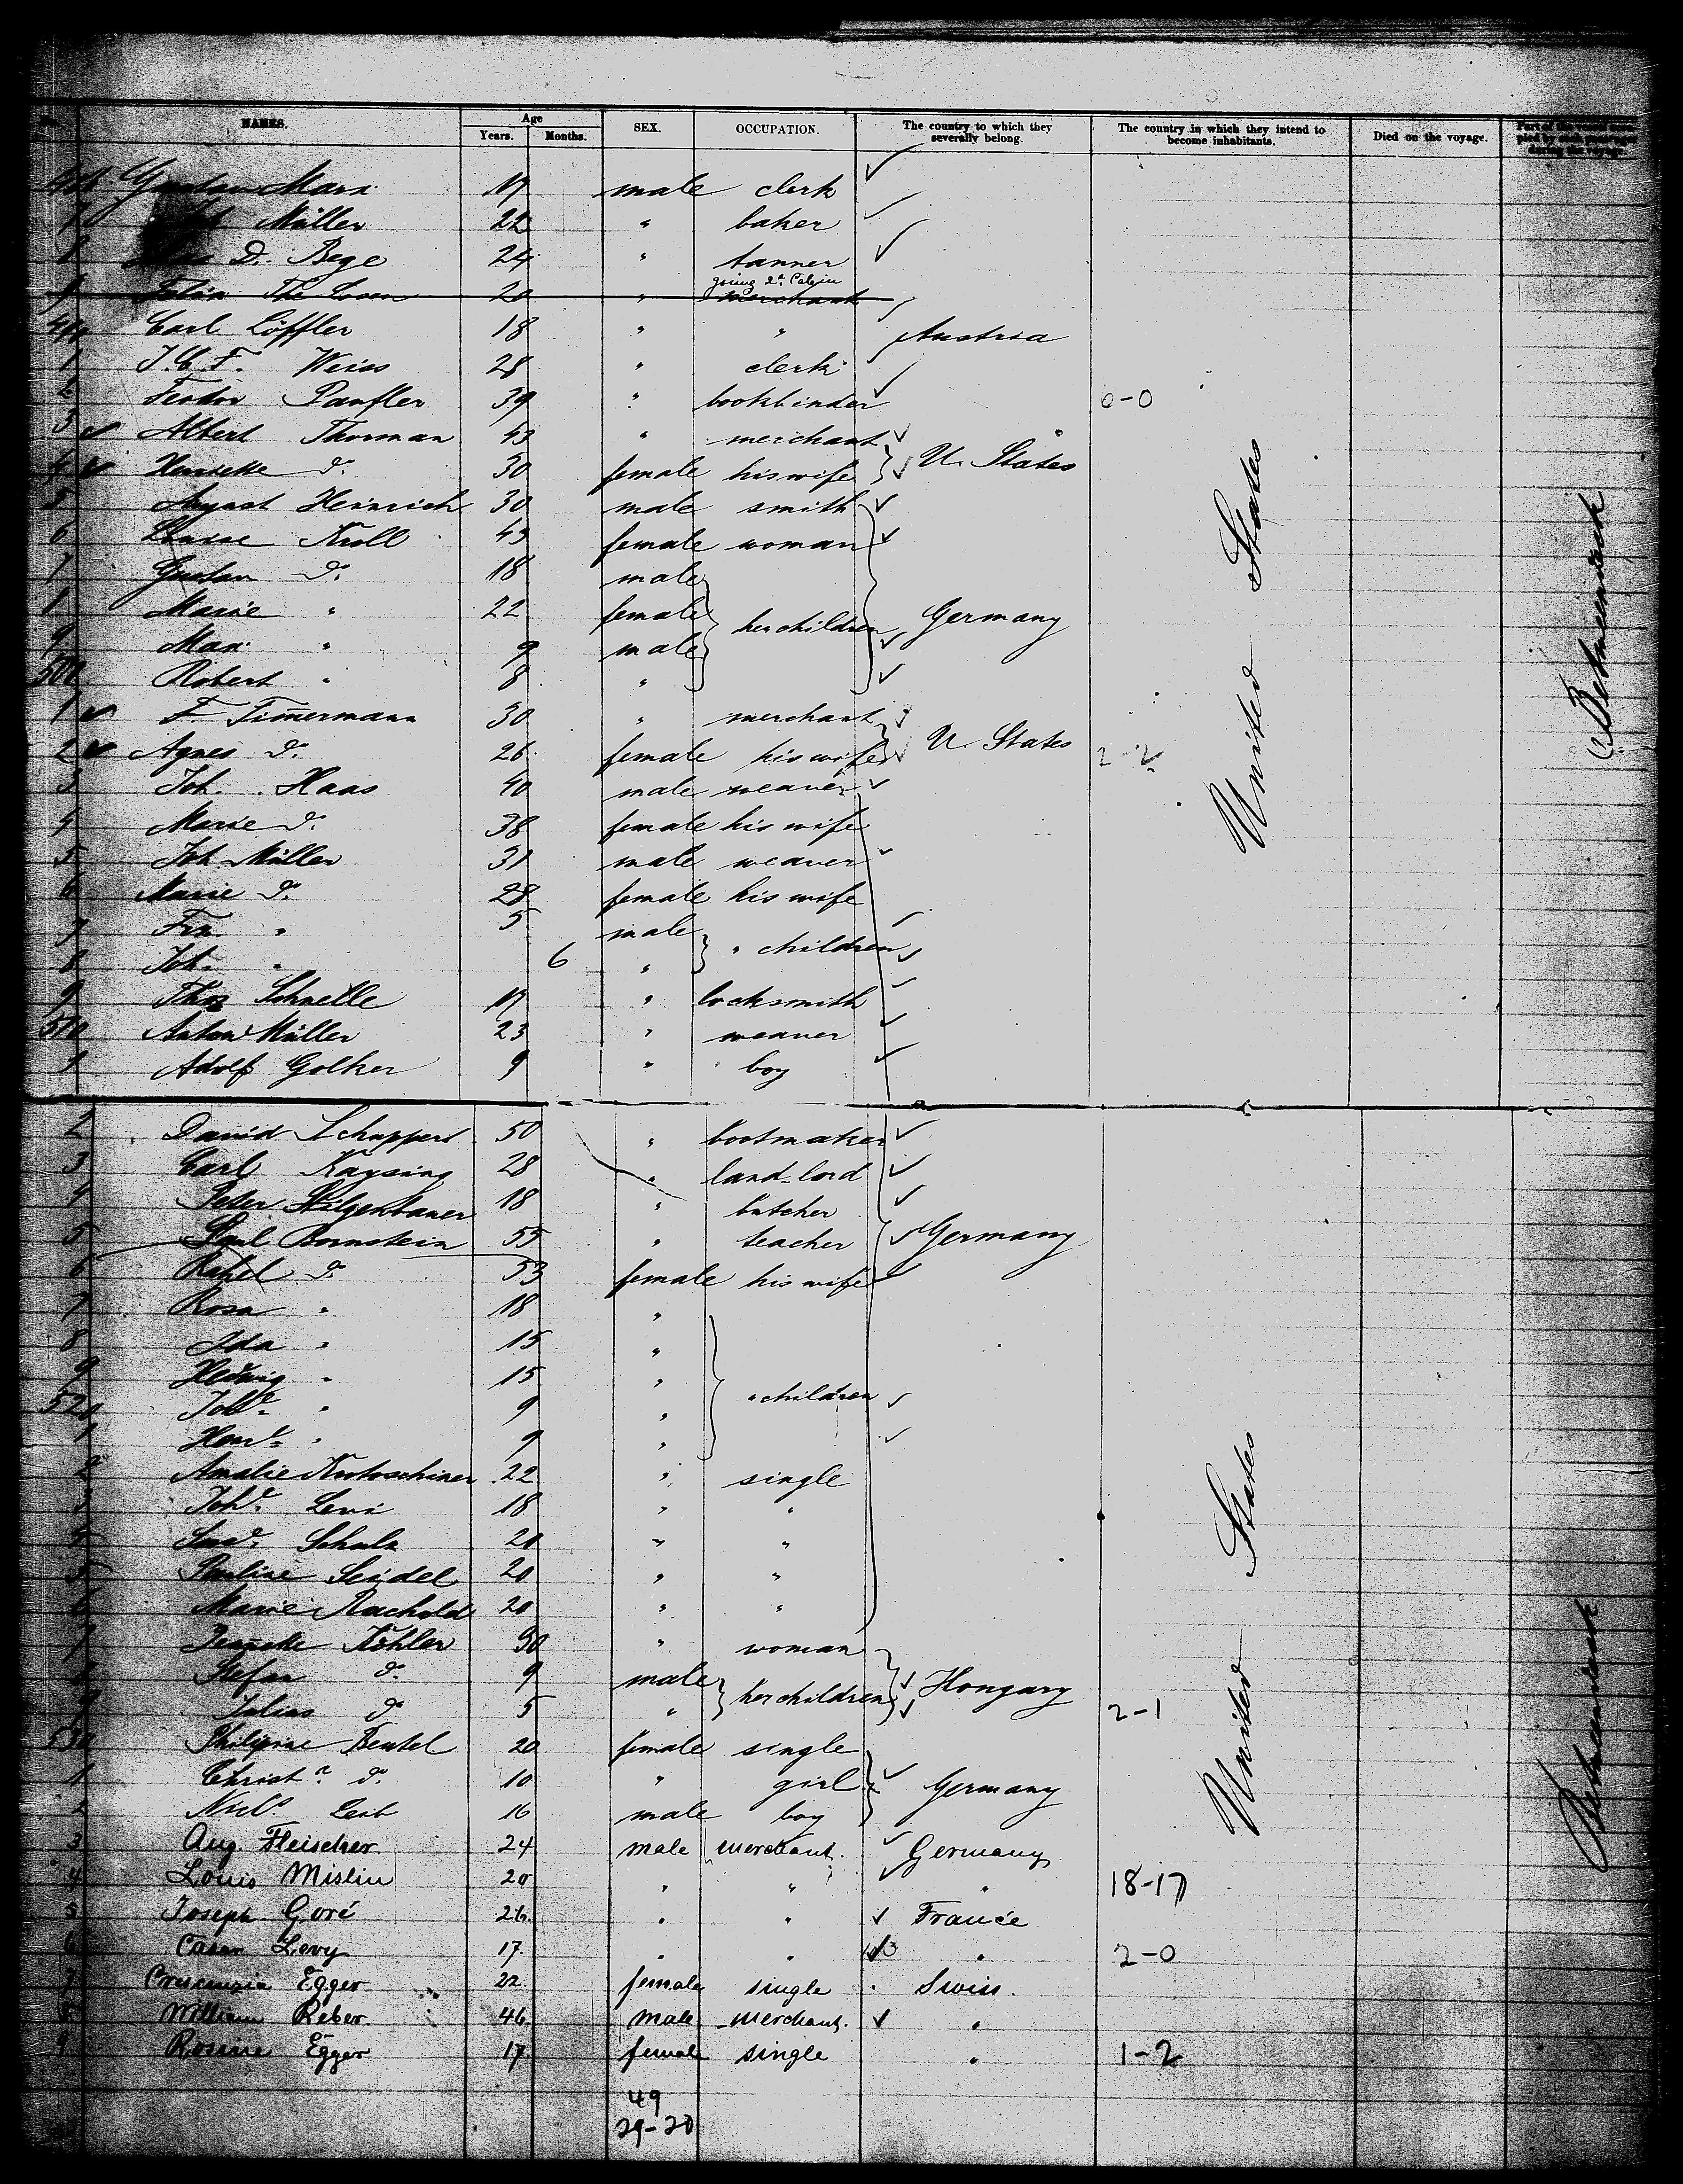 NAMES. Age SEX. OCCUPATION. The country to which they severally belong. The country in which they intend to become inhabitants. Died on the voyage.
Years. Months.
Gustav Marx 17 male clerk
7 Müller 22 " baker
8 D. Bege 24 " tanner
going 2d Cabin
9 20 " merchant
Carl Löffler 18 " " Austria
1 J. C. F. Weiss 28 " clerk
2 Feodor Panfler 39 " bookbinder 0-0
3 Albert Thorman 43 " merchant
4 Henriette do. 30 female his wife U. States
5 August Heinrich 30 male smith
6 Kroll 43 female woman
7 Gustav do. 18 male
Marie " 22 female her children Germany
9 Max " 9 male
500 Robert " 8 "
1 F. Tim̅ermann 30 " merchant
2 Agnes do. 26 female his wife U. States 2-2
3 Joh. Haas 40 male weaver
4 Marie do. 38 female his wife
5 Joh Müller 31 male weaver
6 Marie do. 28 female his wife
7 Frz. " 5 male
8 Joh. " 6 " " children
9 Schnelle 17 " locksmith
510 Anton Müller 23 " weaver
1 Adolf Golker 9 " boy
United States
Betweendeck
2 David Schappert 50 " bootmaker
3 Carl Kaysing 28 " land-lord
4 Peter Hilgenbauer 18 " butcher
5 Bornstein 55 " teacher Germany
6 Rahel do. 53 female his wife
7 Rosa " 18 "
8 Ida " 15 "
9 Hedwig " 15 "
520 Johe. " 9 " " children
1 Hene. " 9 "
2 Amalie Krotoschiner 22 " single
3 Johe. Levi 18 " "
4 Schulz 20 " "
5 Pauline Seidel 20 " "
6 Marie Rachold 20 " "
7 Jean̅ette Köhler 30 " woman
8 Stefan do. 9 male
9 Julius do 5 " her children Hongary 2-1
530 Philipine Beutel 20 female single
1 Christa. do. 10 " girl Germany
2 Nicls. Leib 16 male boy
3 Aug. Fleischer 24 male merchant. Germany
4 Louis Mislin 20 " " " 18-17
5 Joseph Goré 26. " " France
6 Casar Levy 17. " " " 2-0
7 Crescenzia Egger 22 female single Swiss.
8 William Reber 46 male merchant. "
9 Rosine Egger 17 female single " 1-2
United States
Betweendeck
49
29-20